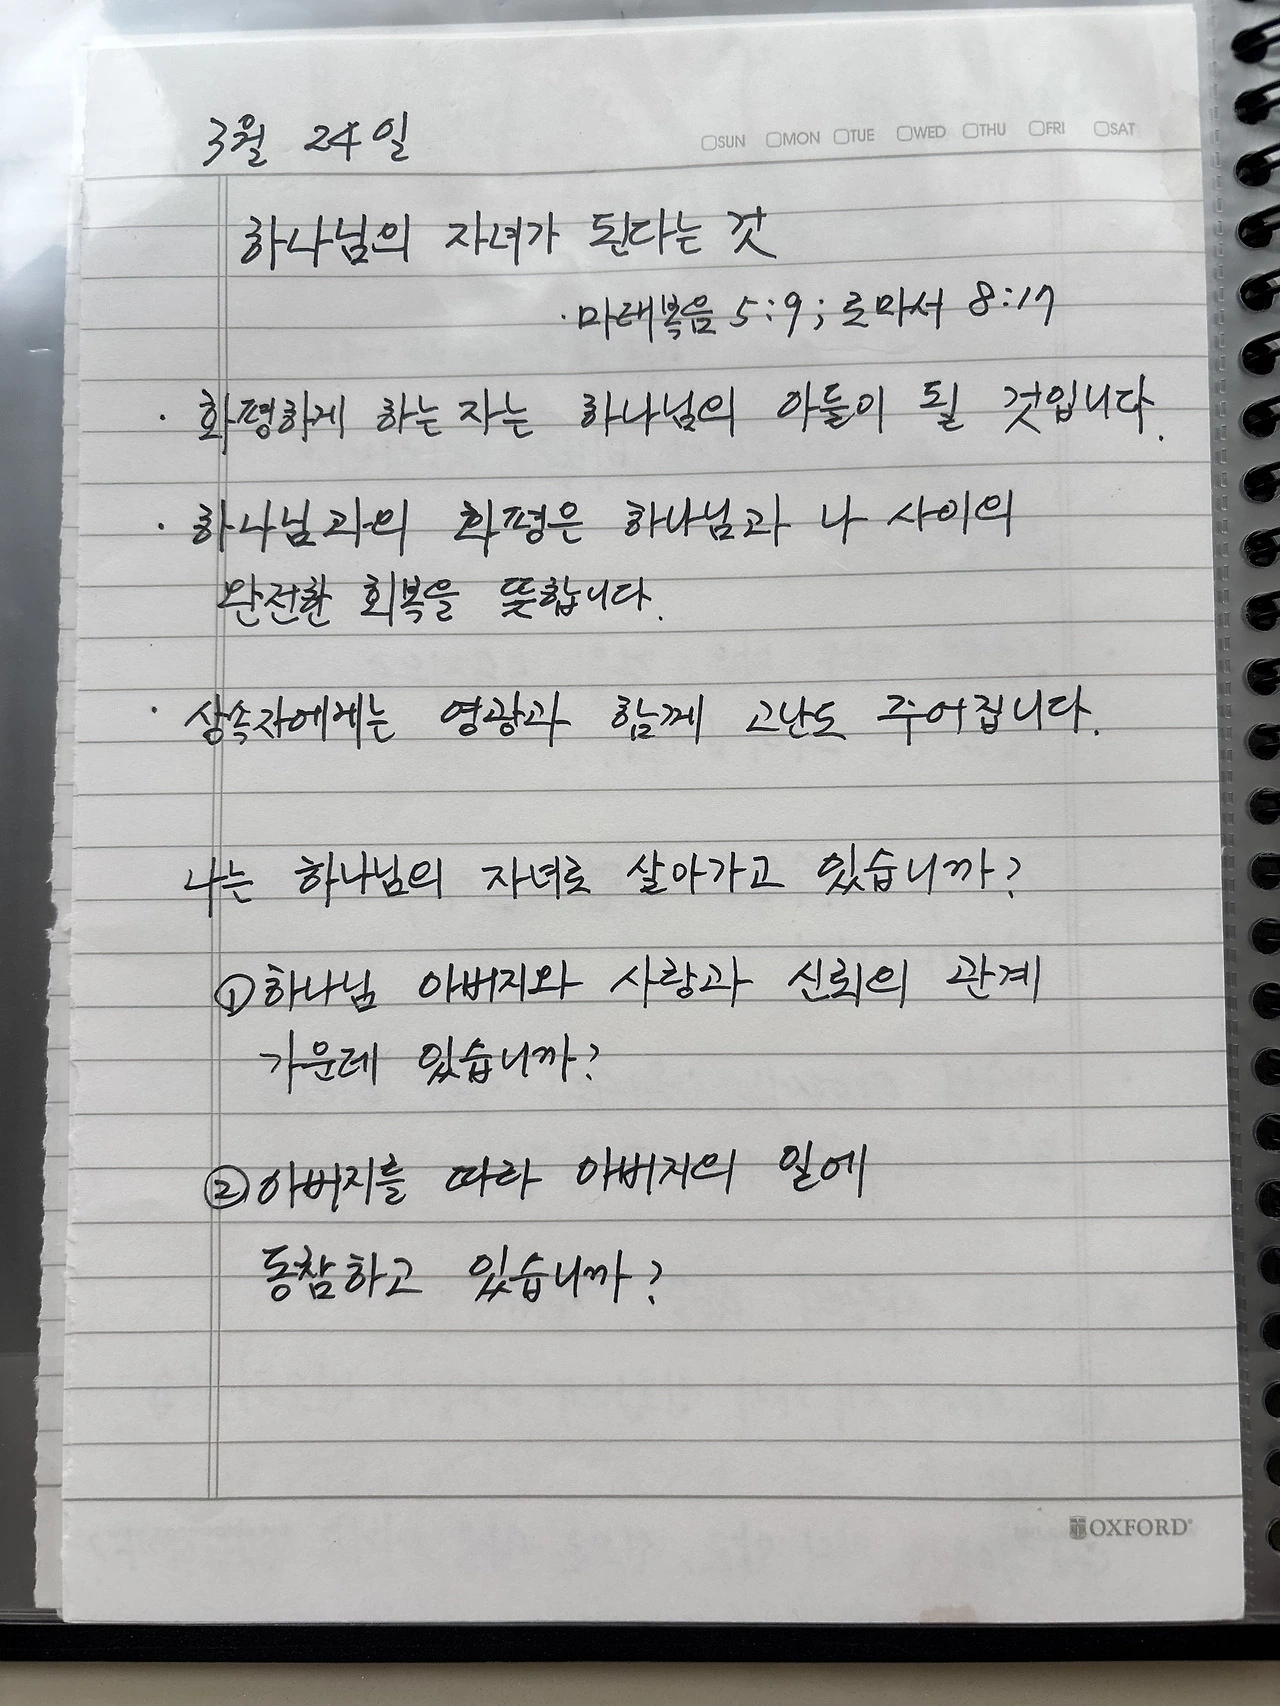 3월 24일
SUN MON TUE WED THU FRI SAT
하나님의 자녀가 된다는 것
· 마태복음 5:9; 로마서 8:17
· 화평하게 하는 자는 하나님의 아들이 될 것입니다.
· 하나님과의 화평은 하나님과 나 사이의
완전한 회복을 뜻합니다.
· 상속자에게는 영광과 함께 고난도 주어집니다.
나는 하나님의 자녀로 살아가고 있습니까?
① 하나님 아버지와 사랑과 신뢰의 관계
가운데 있습니까?
② 아버지를 따라 아버지의 일에
동참하고 있습니까?
OXFORD